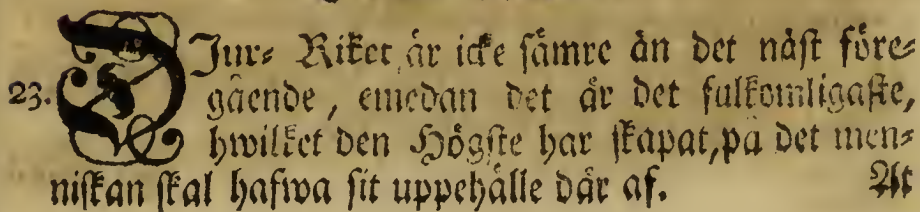 DJur- Riket är icke sämre än det näst före-
23. gående, emedan det är det fulkomligaste,
hwilket den Högste har skapat, på det men-
niskan skal hafwa sit uppehälle där af. At